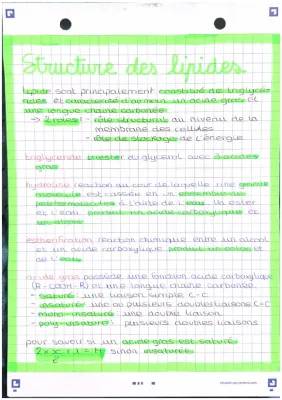 Structure des lipides
lipides sont principalement constitué de triglycé-
rides et caractérisé d'au moins un acide gras et
une longue chaine carbonée.
→ 2 roles : - rôle structural au niveau de la
membrane des cellules
- rôle de stockage de l'énergie
triglycéride triester du glycérol avec 3 acides
gras
hydrolyse reaction au cour de laquelle une grande
molécule est cassée en un ensemble de
petites molécules à l'aide de l'eau. Un ester
et l'eau produit un acide carboxylique et
un alcool
estherification reaction chimique entre un alcool
et un acide carboxylique produit un ester et
de l'eau
acide gras possède une fonction acide carboxylique
(R-COOH-R) et une longue chaine carbonée.
- saturé : une liaison simple C-C
- insaturé une ou plusieurs doubles liaisons C=C
- mono-insaturé une double liaison
- poly-insaturé : plusieurs doubles liaisons
pour savoir si un acide gras est saturé
sinon insaturée